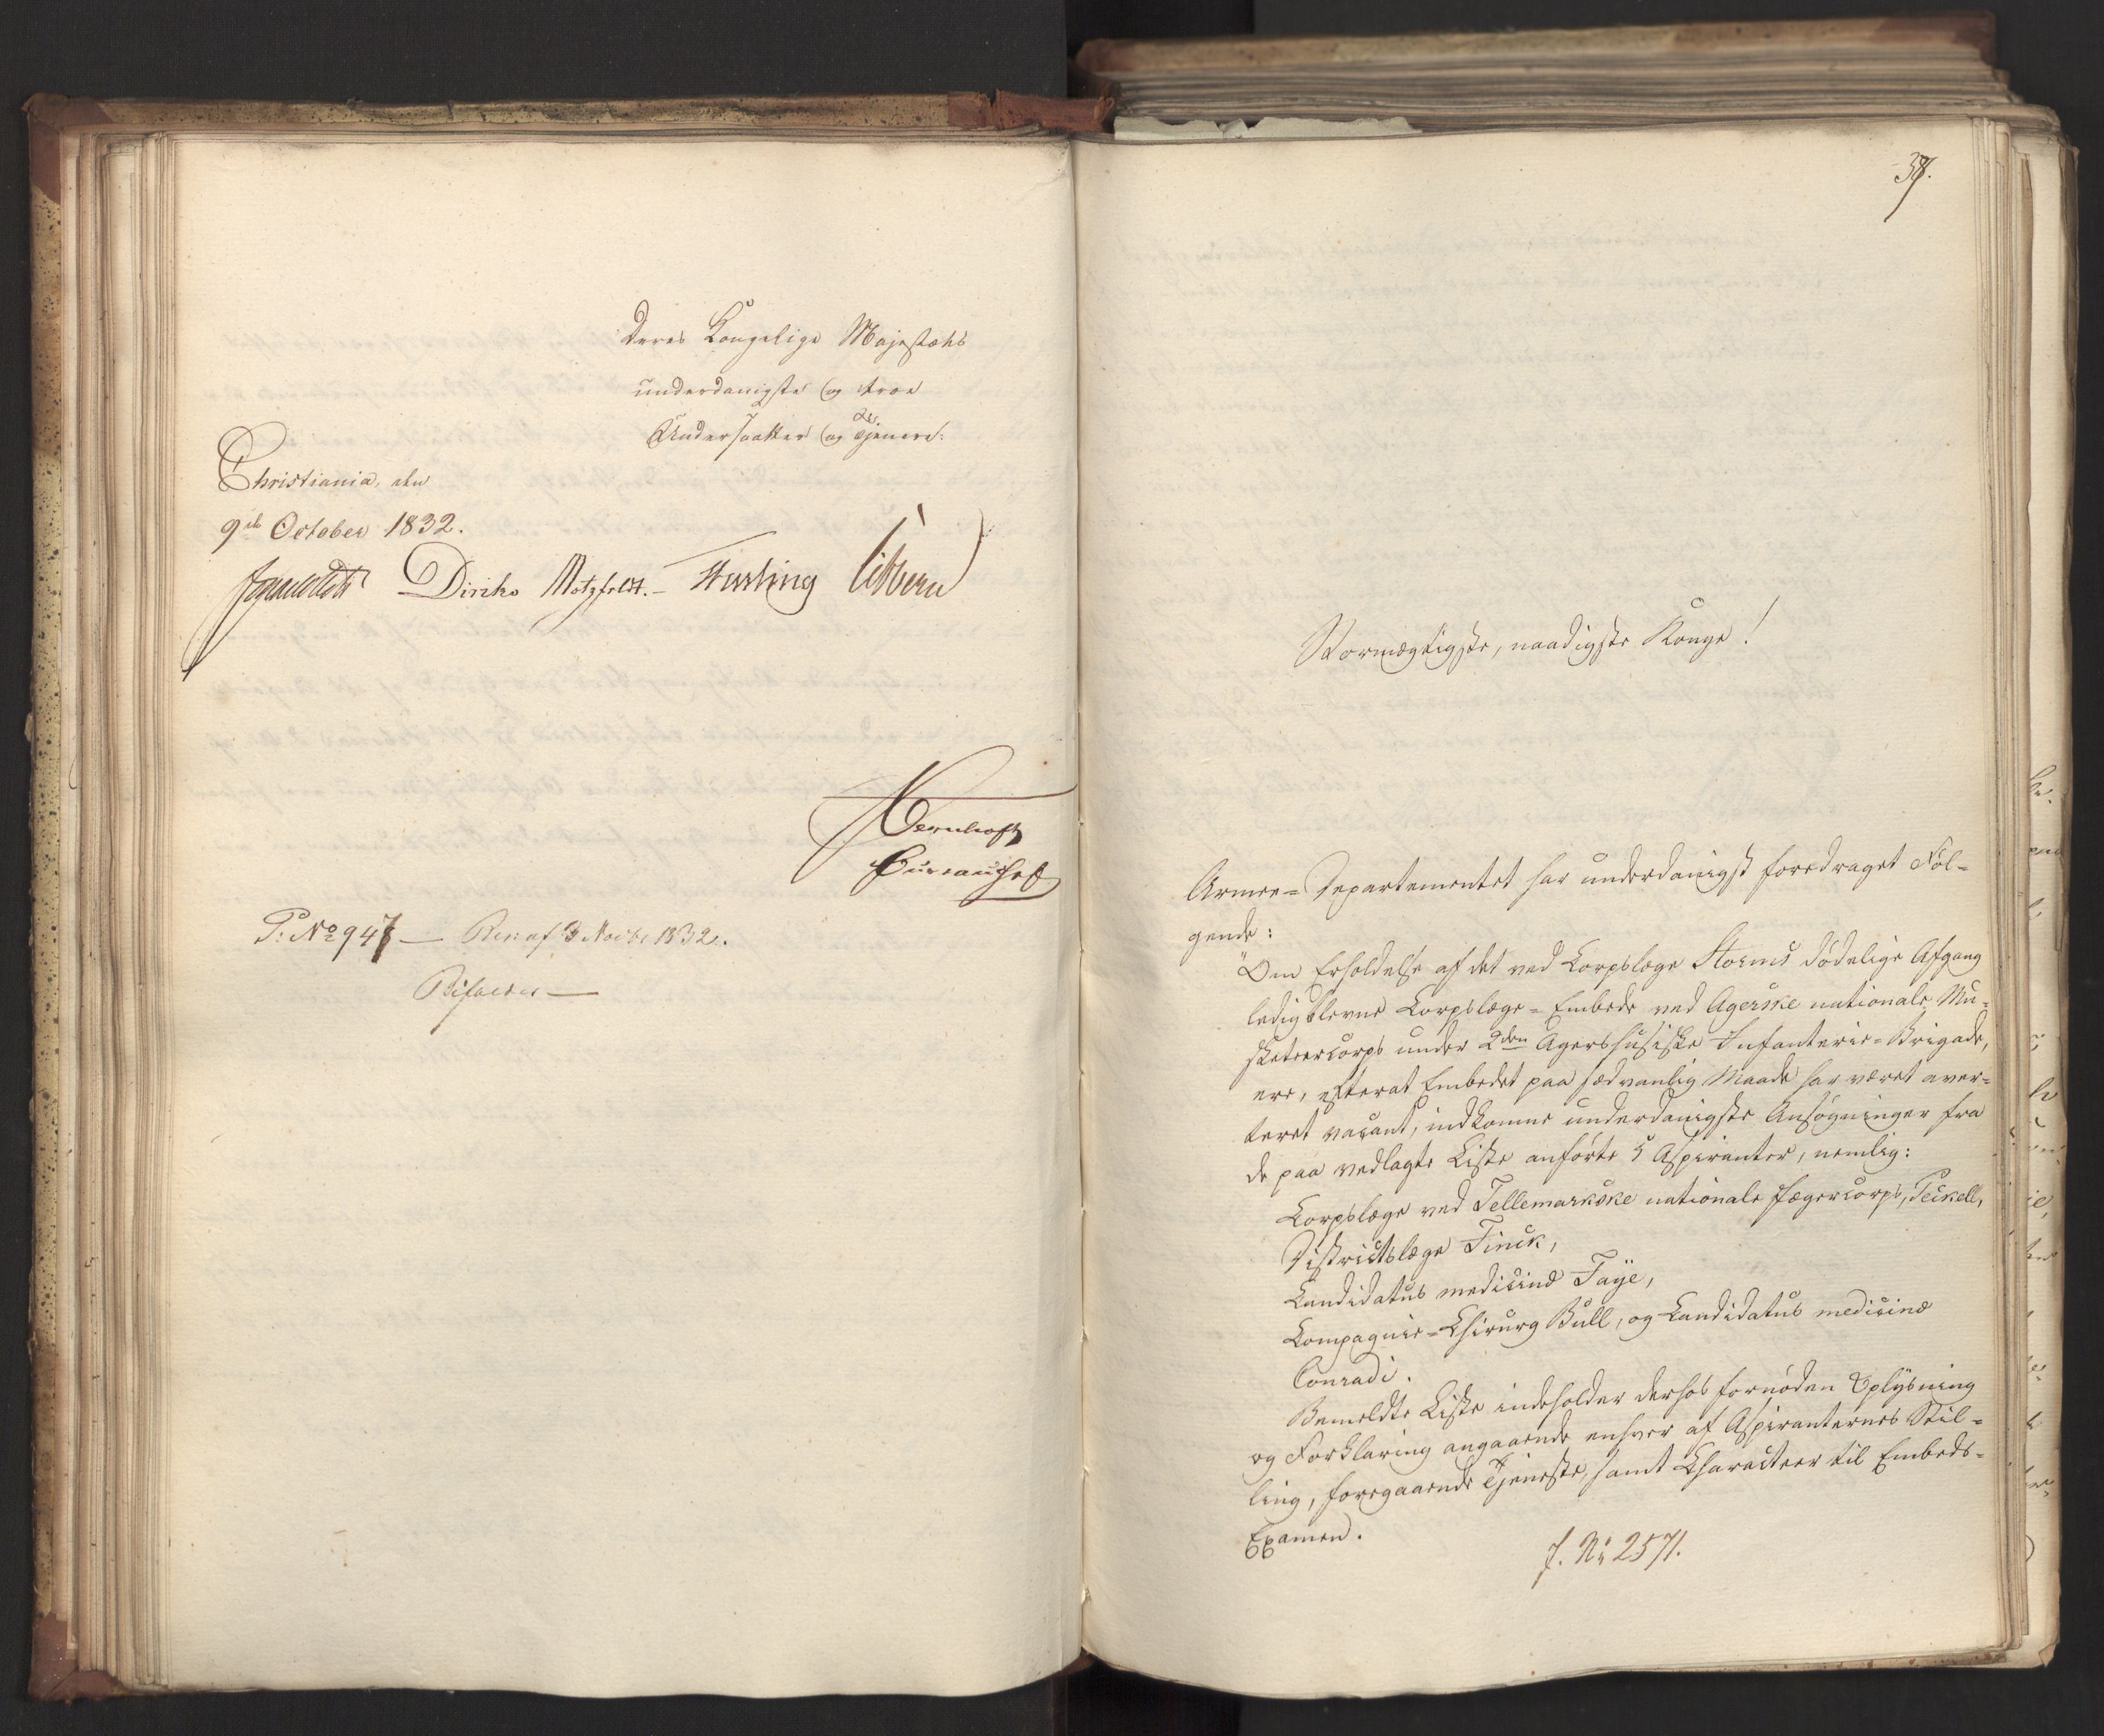 Deres Kongelige Majestæts
underdanigste og troe
Undersaatter og Tjenere:
Christiania, den
9de October 1832.
Diriks Motzfeldt. Herling Sibbern
Wernhoft
Bureauchef
P: No 947 — Res. af 3 Novbr 1832.
Bifaldes —
37.
Stormægtigste, naadigste Konge!
Armee-Departementet har underdanigst foredraget Föl-
gende:
"Om Erholdelse af det ved Corpslæge Storms dödelige Afgang
ledigblevne Corpslæge-Embede ved Agerske nationale Mu-
sketeercorps under 2den Agershusiske Infanterie-Brigade,
ere, efterat Embedet paa sædvanlig Maade har været aver-
teret vacant, indkomne underdanigste Ansögninger fra
de paa vedlagte Liste anförte 5 Aspiranter, nemlig:
Corpslæge ved Tellemarkske nationale Jægercorps, Peckell,
Districtslæge Finck,
Candidatus medicinæ Faye,
Compagnie-Chirurg Bull, og Candidatus medicinæ
Conradi.
Bemeldte Liste indeholder derhos fornöden Oplysning
og Forklaring angaaende enhver af Aspiranternes Stil-
ling, foregaaende Tjeneste, samt Characteer til Embeds-
Examen.
J. No 2571.